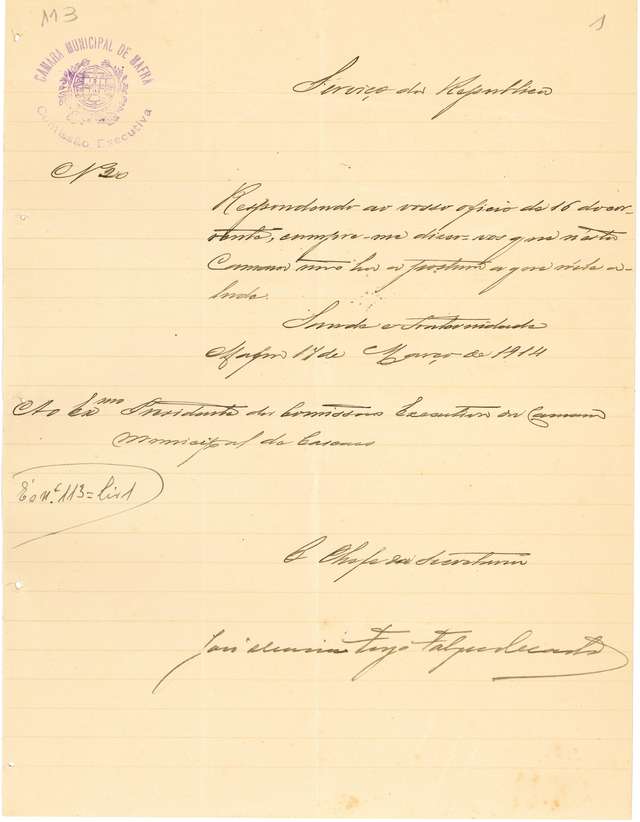 113
1
CAMARA MUNICIPAL DE MAFRA
Comissão Executiva
Serviço da Republica
Nº 20
Respondendo ao vosso oficio de 16 do cor-
rente, cumpre-me dizer-vos que nésta
Camara não ha a postura a que nele a-
lude.
Saude e Fraternidade
Mafra 17 de Março de 1914
Ao Exmo Presidente da Comissão Executiva da Camara
Municipal de Cascaes
113 = Liv 1
O Chefe da Secretaria
José